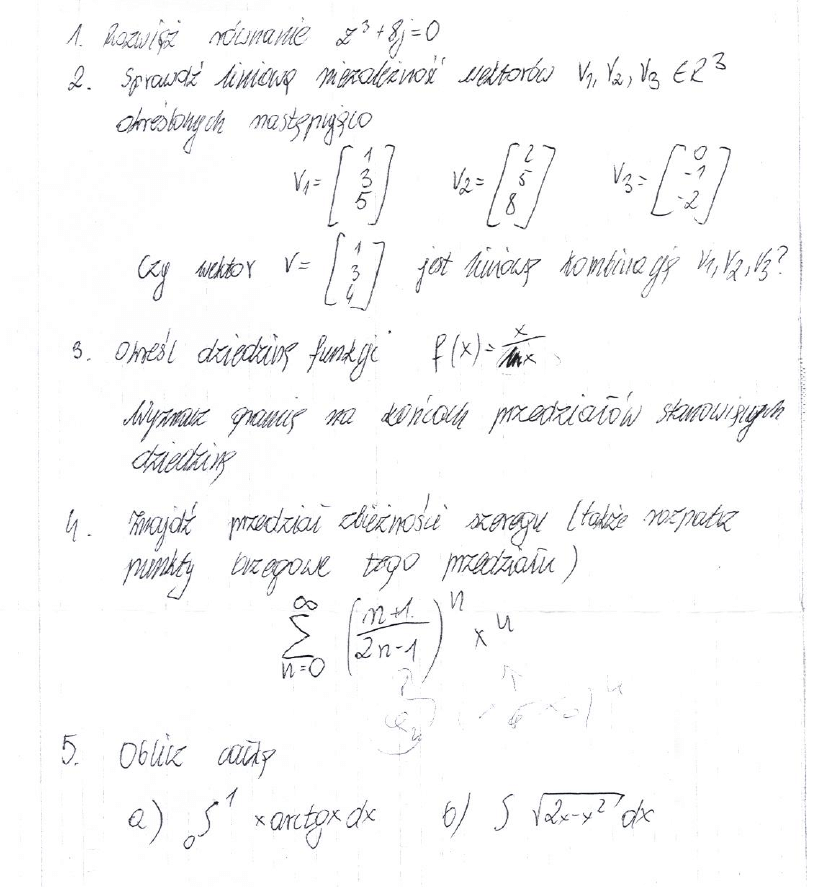 1. Rozwiąż równanie z³ + 8j = 0
2. Sprawdź liniową niezależność wektorów V₁, V₂, V₃ ∈ R³
określonych następująco
V₁ = [1 3 5] V₂ = [2 5 8] V₃ = [0 -1 -2]
Czy wektor V = [1 3 4] jest liniową kombinacją V₁, V₂, V₃?
3. Określ dziedzinę funkcji f(x) = x / ln x
Wyznacz granicę na końcach przedziałów stanowiących
dziedzinę
4. Znajdź przedział zbieżności szeregu (także rozpatrz
punkty brzegowe tego przedziału)
∞ ∑ n=0 ( n+1 / 2n-1 )ⁿ xⁿ
5. Oblicz całkę
a) ₀∫¹ x arctgx dx b) ∫ √(2x-x²) dx